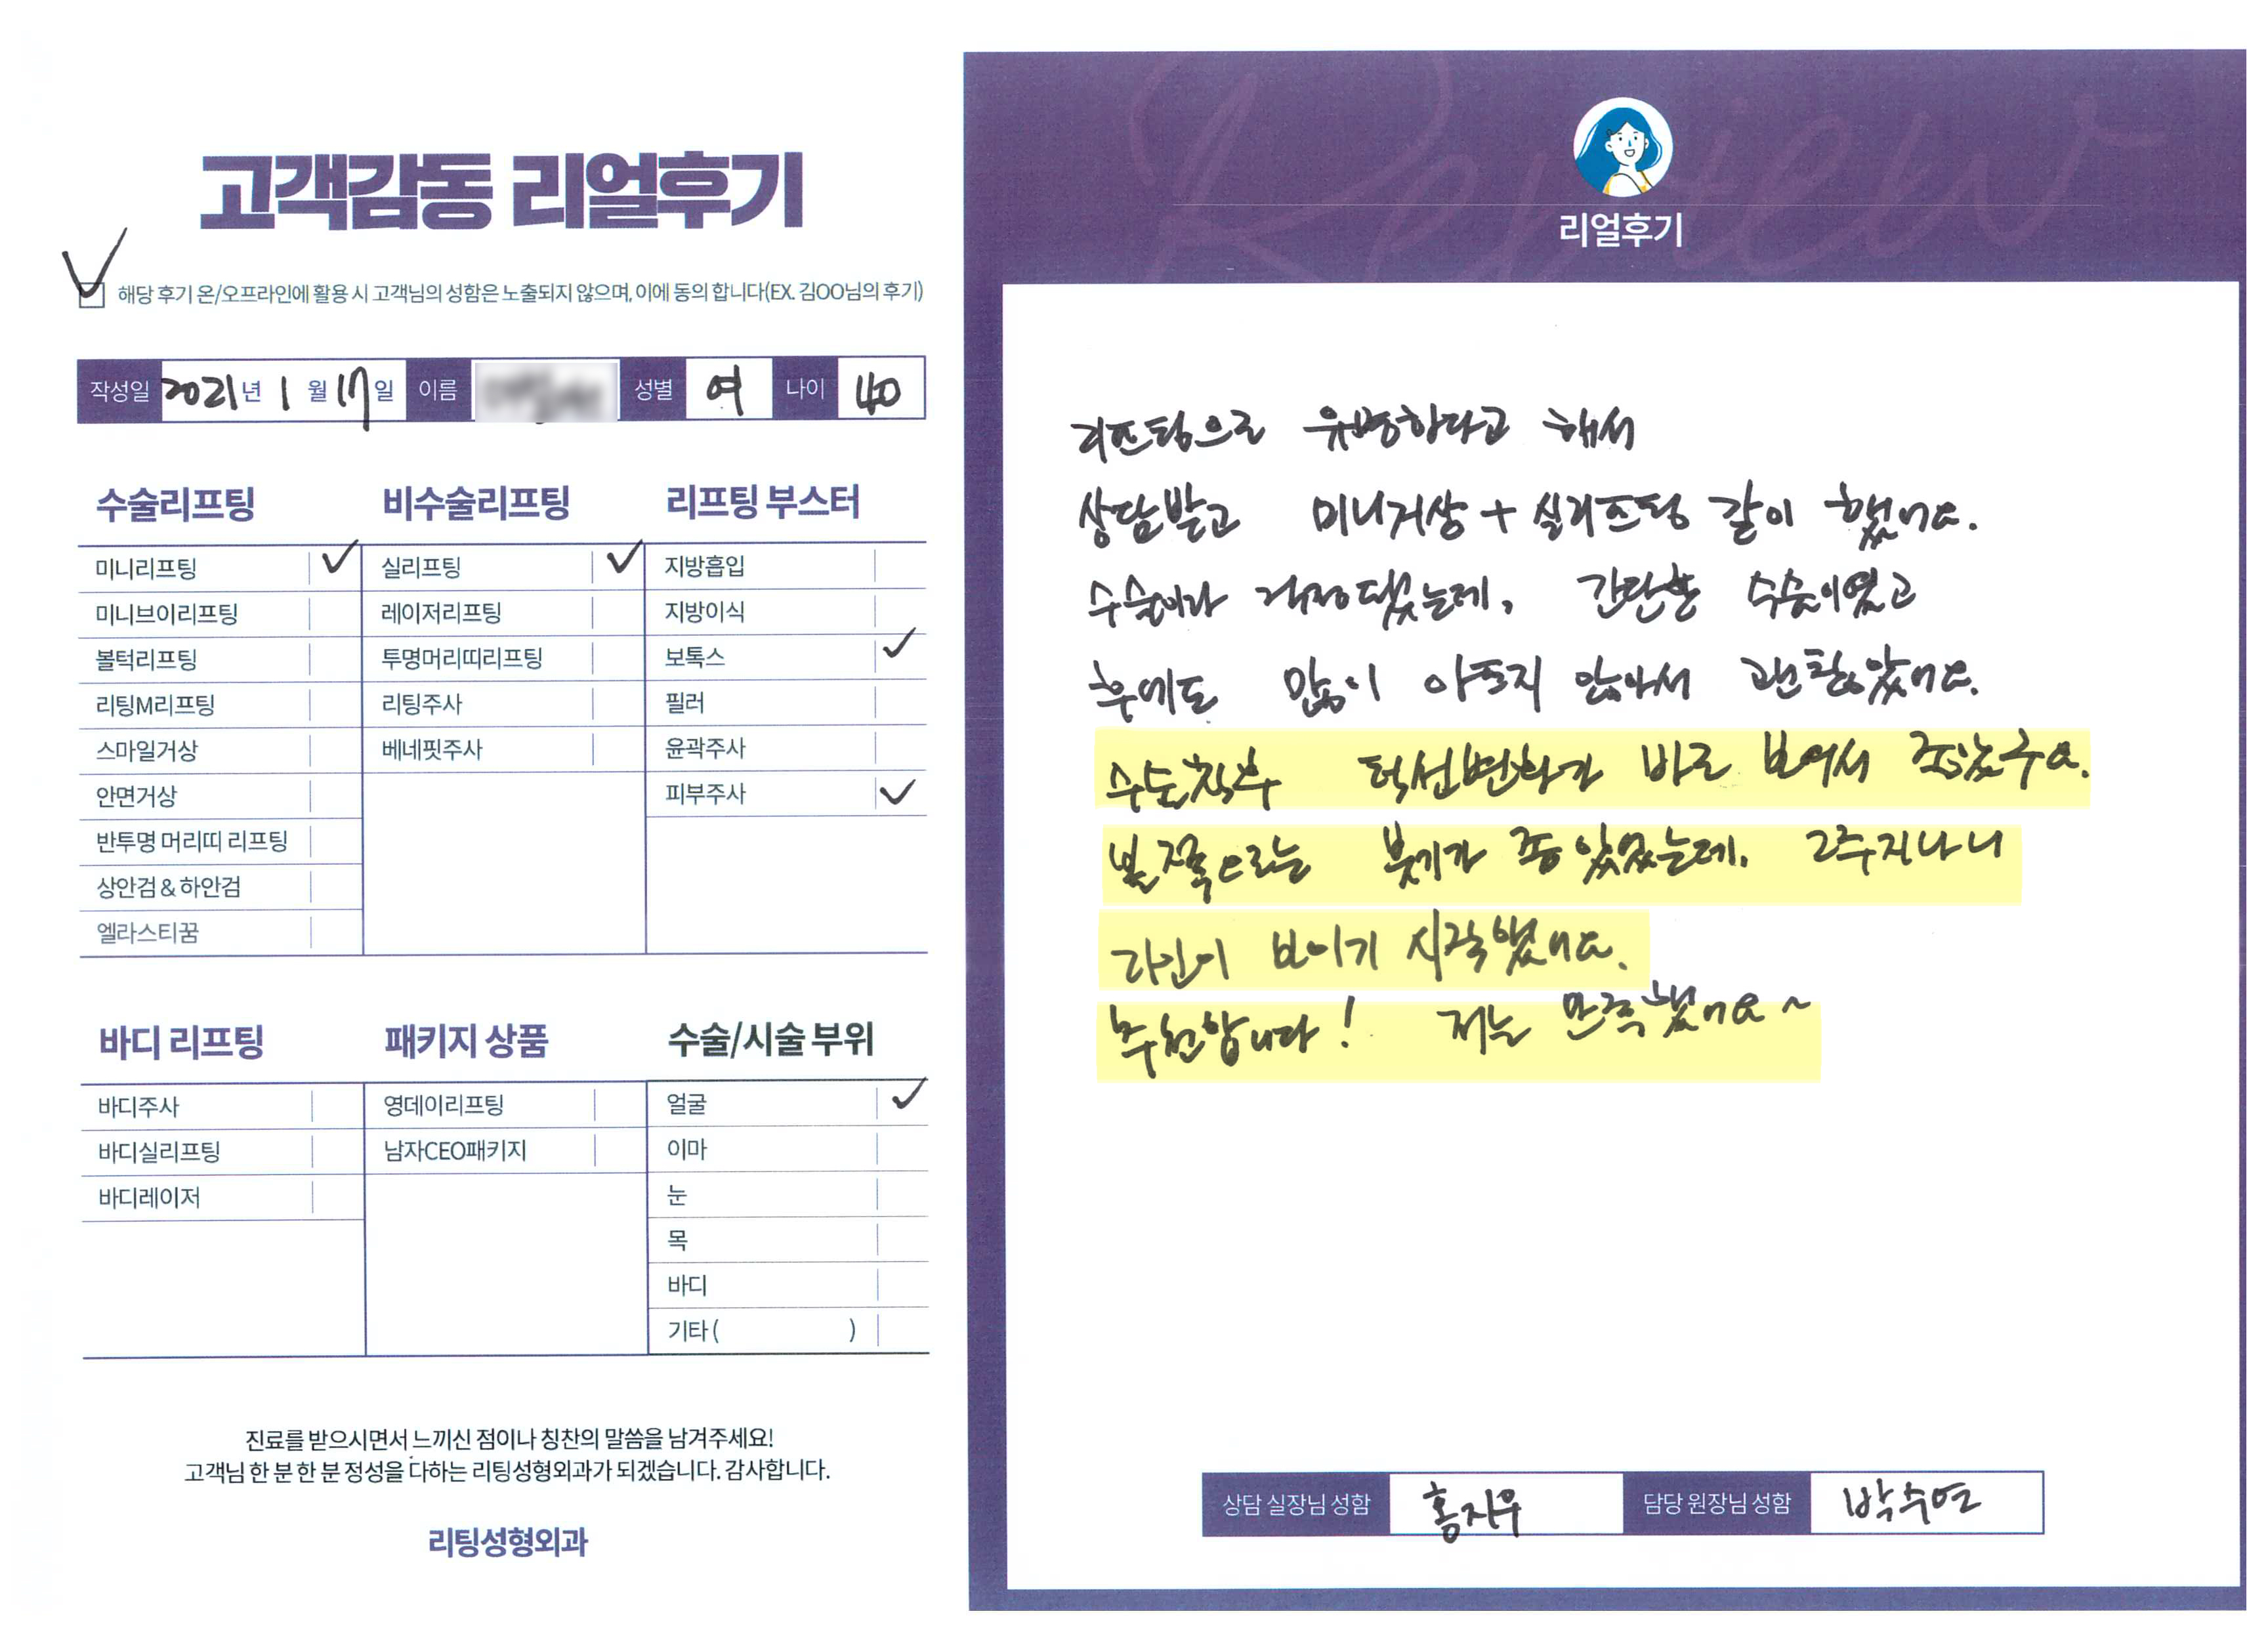 고객감동 리얼후기
✓ 해당 후기 온/오프라인에 활용 시 고객님의 성함은 노출되지 않으며, 이에 동의 합니다(EX. 김OO님의 후기)
작성일 2021년 1월 17일 이름 성별 여 나이 40
수술리프팅 비수술리프팅 리프팅 부스터
미니리프팅 ✓ 실리프팅 ✓ 지방흡입
미니브이리프팅 레이저리프팅 지방이식
볼턱리프팅 투명머리띠리프팅 보톡스 ✓
리팅M리프팅 리팅주사 필러
스마일거상 베네핏주사 윤곽주사
안면거상 피부주사 ✓
반투명 머리띠 리프팅
상안검 & 하안검
엘라스티꿈
바디 리프팅 패키지 상품 수술/시술 부위
바디주사 영데이리프팅 얼굴 ✓
바디실리프팅 남자CEO패키지 이마
바디레이저 눈
목
바디
기타 ( )
진료를 받으시면서 느끼신 점이나 칭찬의 말씀을 남겨주세요!
고객님 한 분 한 분 정성을 다하는 리팅성형외과가 되겠습니다. 감사합니다.
리팅성형외과
Review
리얼후기
리프팅으로 유명하다고 해서
상담받고 미니거상 + 실리프팅 같이 했어요.
수술이라 걱정됐었는데, 간단한 수술이였고
후에도 많이 아프지 않아서 괜찮았어요.
수술직후 턱선변화가 바로 보여서 좋았구요.
볼쪽으로는 붓기가 좀 있었는데. 2주지나니
라인이 보이기 시작했어요.
추천합니다! 저는 만족했어요~
상담 실장님 성함 홍지우 담당 원장님 성함 박수연